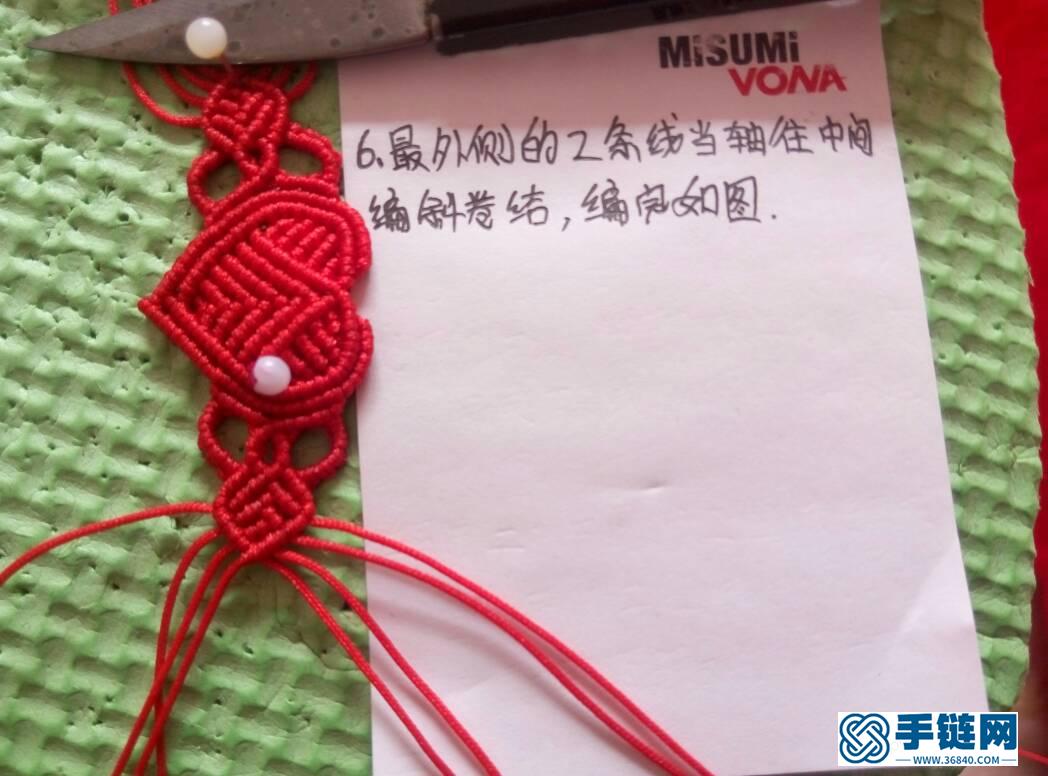 MiSUMi
VONA
6.最外侧的2条线当轴住中间
编斜卷结,编完如图.
手链网
WWW.36840.COM